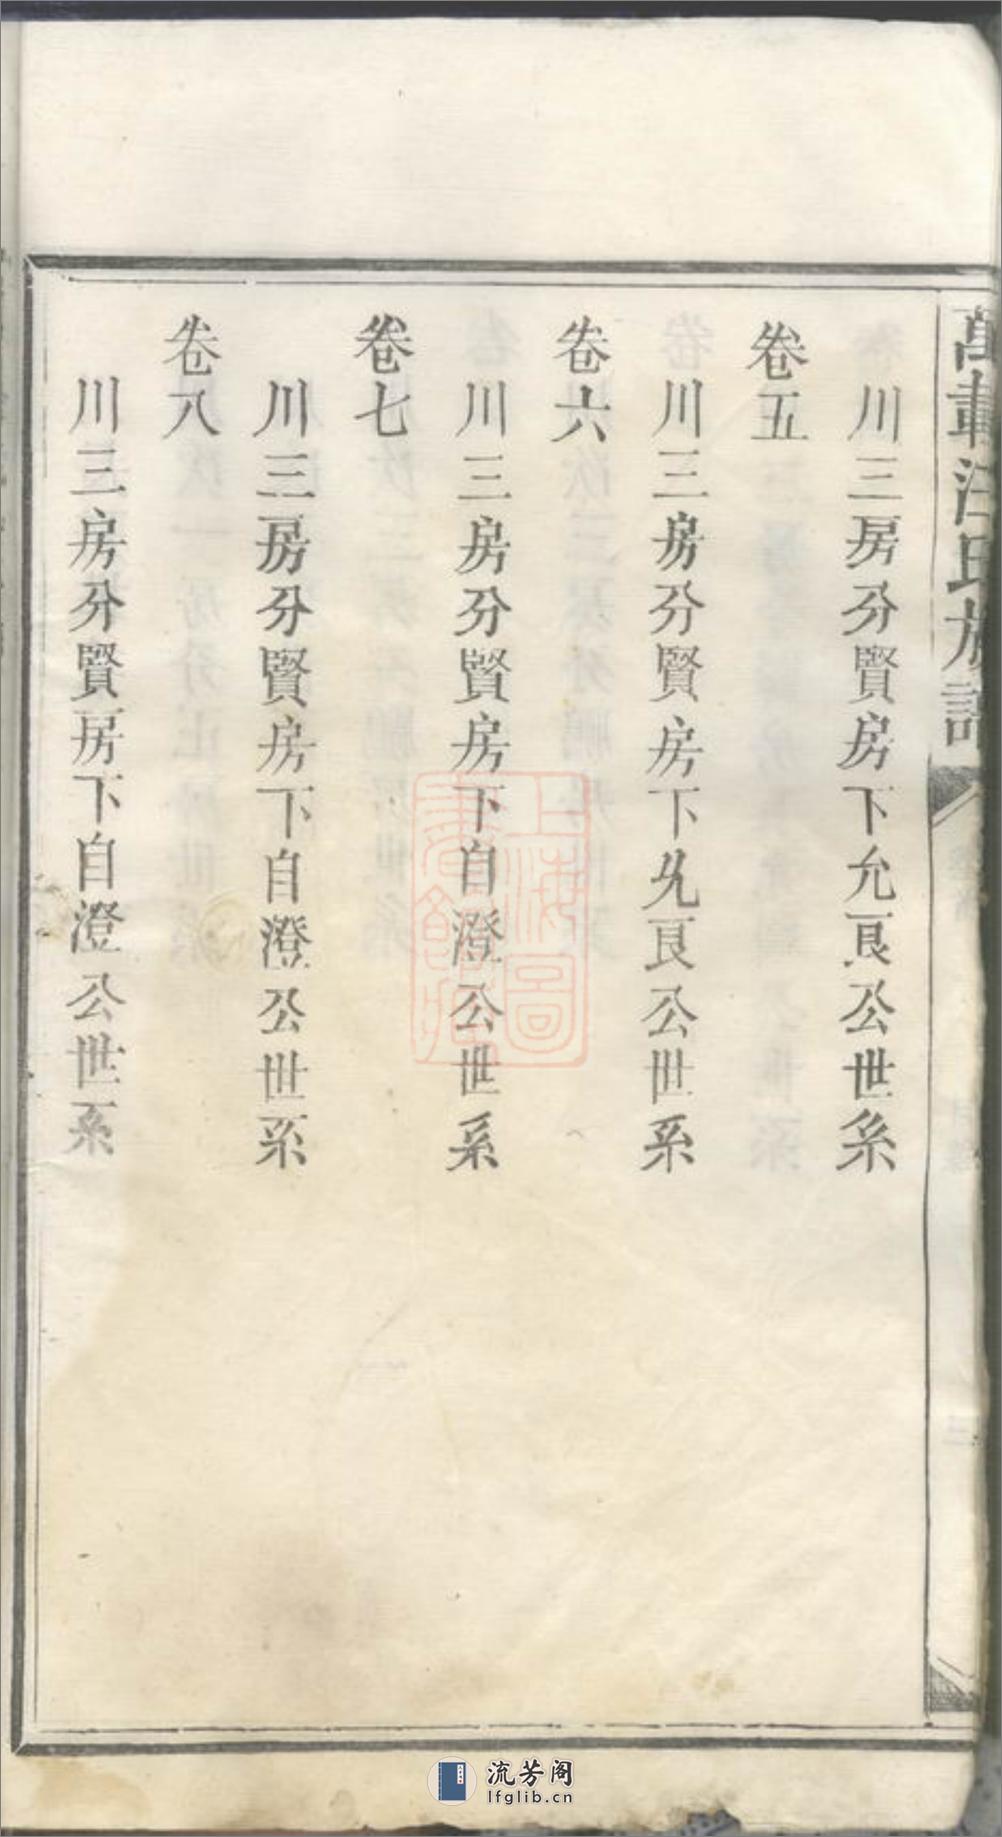 萬載汪氏族譜
川三房分賢房下允良公世系
卷五
川三房分賢房下允良公世系
卷六
川三房分賢房下自澄公世系
卷七
川三房分賢房下自澄公世系
卷八
川三房分賢房下自澄公世系
上海圖書館藏
流芳阁
lfglib.cn